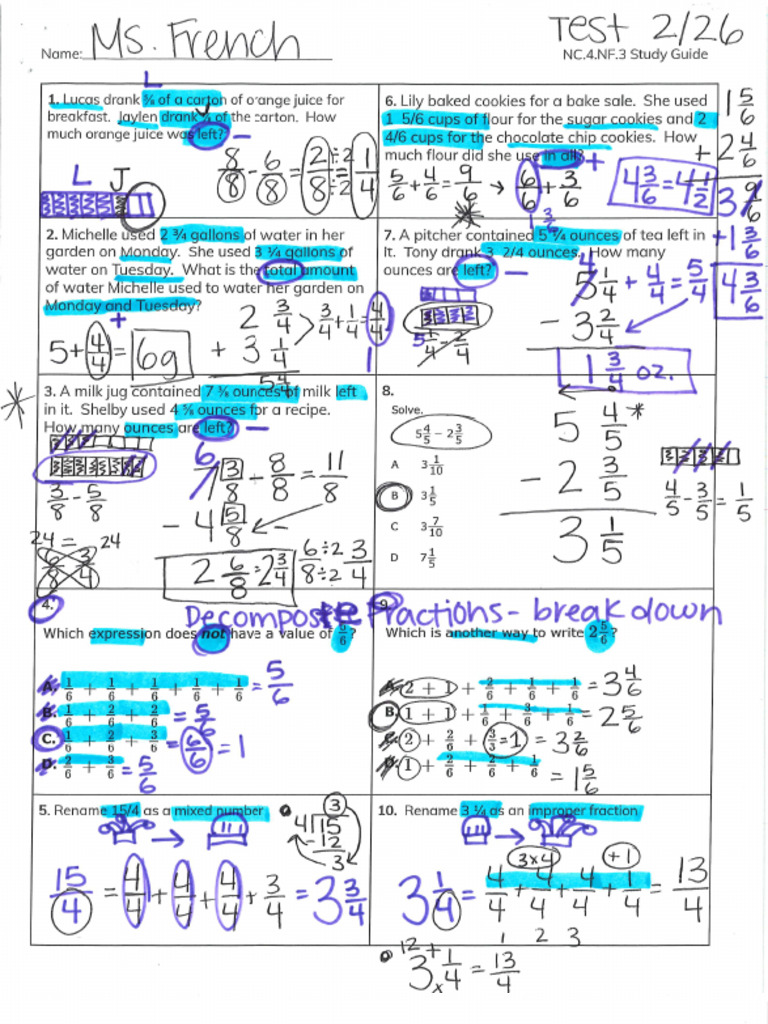 Name: Ms. French
Test 2/26
NC.4.NF.3 Study Guide
L
1. Lucas drank ⅝ of a carton of orange juice for
breakfast. Jaylen drank ⅛ of the carton. How
much orange juice was left? -
L J
8/8 - 6/8 = 2/8 ÷2/÷2 = 1/4
2. Michelle used 2 ¾ gallons of water in her
garden on Monday. She used 3 ¼ gallons of
water on Tuesday. What is the total amount
of water Michelle used to water her garden on
Monday and Tuesday?
+
2 3/4
+ 3 1/4
5 4/4
3/4 + 1/4 = 4/4
1
5 + 4/4 = 6g
3. A milk jug contained 7 ⅜ ounces of milk left
in it. Shelby used 4 ⅝ ounces for a recipe.
How many ounces are left? -
3/8 - 5/8
6
7 3/8 + 8/8 = 11/8
- 4 5/8
2 6/8 = 2 3/4
6÷2/8÷2 = 3/4
24 = 24
6/8 3/4
4.
Decompose Fractions - break down
Which expression does not have a value of 5/6?
A. 1/6 + 1/6 + 1/6 + 1/6 + 1/6 = 5/6
B. 1/6 + 2/6 + 2/6 = 5/6
C. 1/6 + 2/6 + 3/6 = 6/6 = 1
D. 2/6 + 3/6 = 5/6
5. Rename 15/4 as a mixed number
3
4 15
- 12
3
15/4 = 4/4 + 4/4 + 4/4 + 3/4 = 3 3/4
6. Lily baked cookies for a bake sale. She used
1 5/6 cups of flour for the sugar cookies and 2
4/6 cups for the chocolate chip cookies. How
much flour did she use in all? +
5/6 + 4/6 = 9/6 → 6/6 + 3/6
1 3/6
4 3/6 = 4 1/2
1 5/6
+ 2 4/6
3 9/6
+ 1 3/6
4 3/6
7. A pitcher contained 5 ¼ ounces of tea left in
it. Tony drank 3 2/4 ounces. How many
ounces are left? -
5 1/4 - 2/4
4
5 1/4 + 4/4 = 5/4
- 3 2/4
1 3/4 oz.
8.
Solve.
5 4/5 - 2 3/5
A 3 1/10
B 3 1/5
C 3 7/10
D 7 1/5
5 4/5 *
- 2 3/5
3 1/5
4/5 - 3/5 = 1/5
9.
Which is another way to write 2 5/6?
A. 2 + 1 + 2/6 + 1/6 + 1/6 = 3 4/6
B. 1 + 1 + 1/6 + 3/6 + 1/6 = 2 5/6
C. 2 + 2/6 + 3/3 = 1 = 3 2/6
D. 1 + 2/6 + 2/6 + 1/6 = 1 5/6
10. Rename 3 ¼ as an improper fraction
3x4 +1
3 1/4 = 4/4 + 4/4 + 4/4 + 1/4 = 13/4
1 2 3
12 +
3 x 1/4 = 13/4